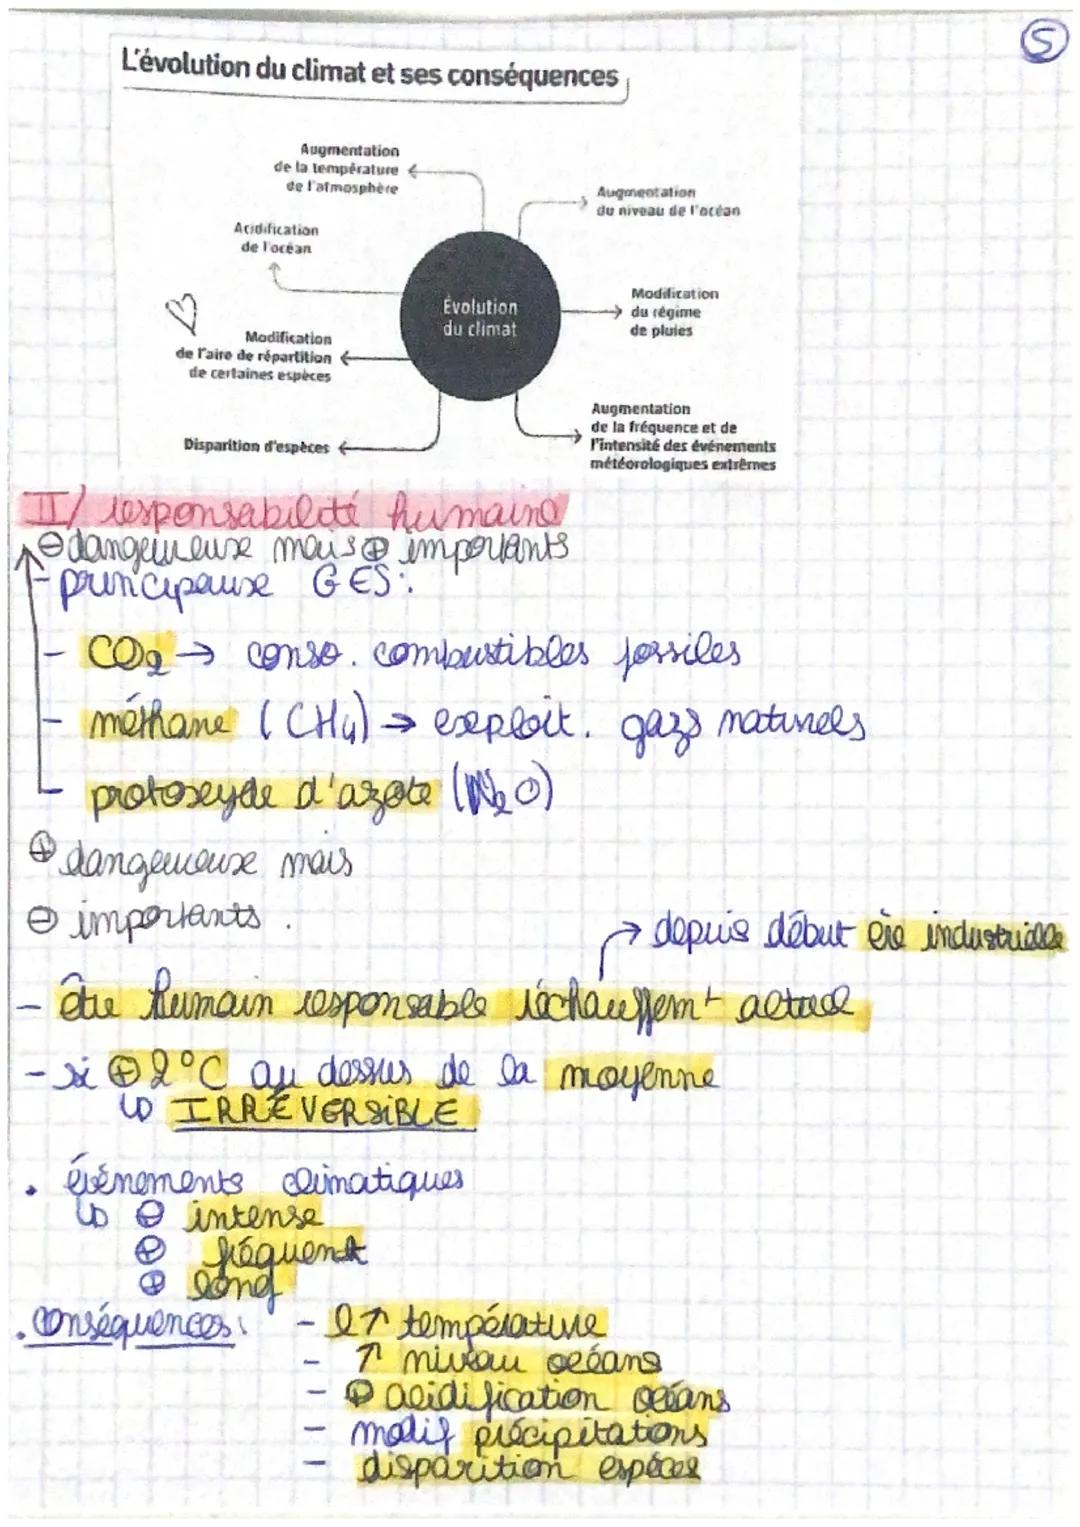 5
L'évolution du climat et ses conséquences
Augmentation
de la température
de l'atmosphère
Augmentation
du niveau de l'océan
Acidification
de l'océan
Évolution
du climat
Modification
du régime
de pluies
Modification
de l'aire de répartition
de certaines espèces
Augmentation
de la fréquence et de
l'intensité des événements
météorologiques extrêmes
Disparition d'espèces
II/ responsabilité humaine
⊖ dangereux mais ⊕ importants
- principaux GES :
- CO₂ → conso. combustibles fossiles
- méthane (CH₄) → exploit. gazs naturels
- protoxyde d'azote (N₂O)
⊕ dangereux mais
⊖ importants.
→ depuis début ère industrielle
- être humain responsable réchauffemt actuel
- si ⊕ 2°C au dessus de la moyenne
↳ IRRÉVERSIBLE
• événements climatiques
↳ ⊖ intense
⊕ fréquent
⊕ long
. conséquences :
- ↑ température
- ↑ niveau océans
- ⊕ acidification océans
- modif précipitations
- disparition espèces